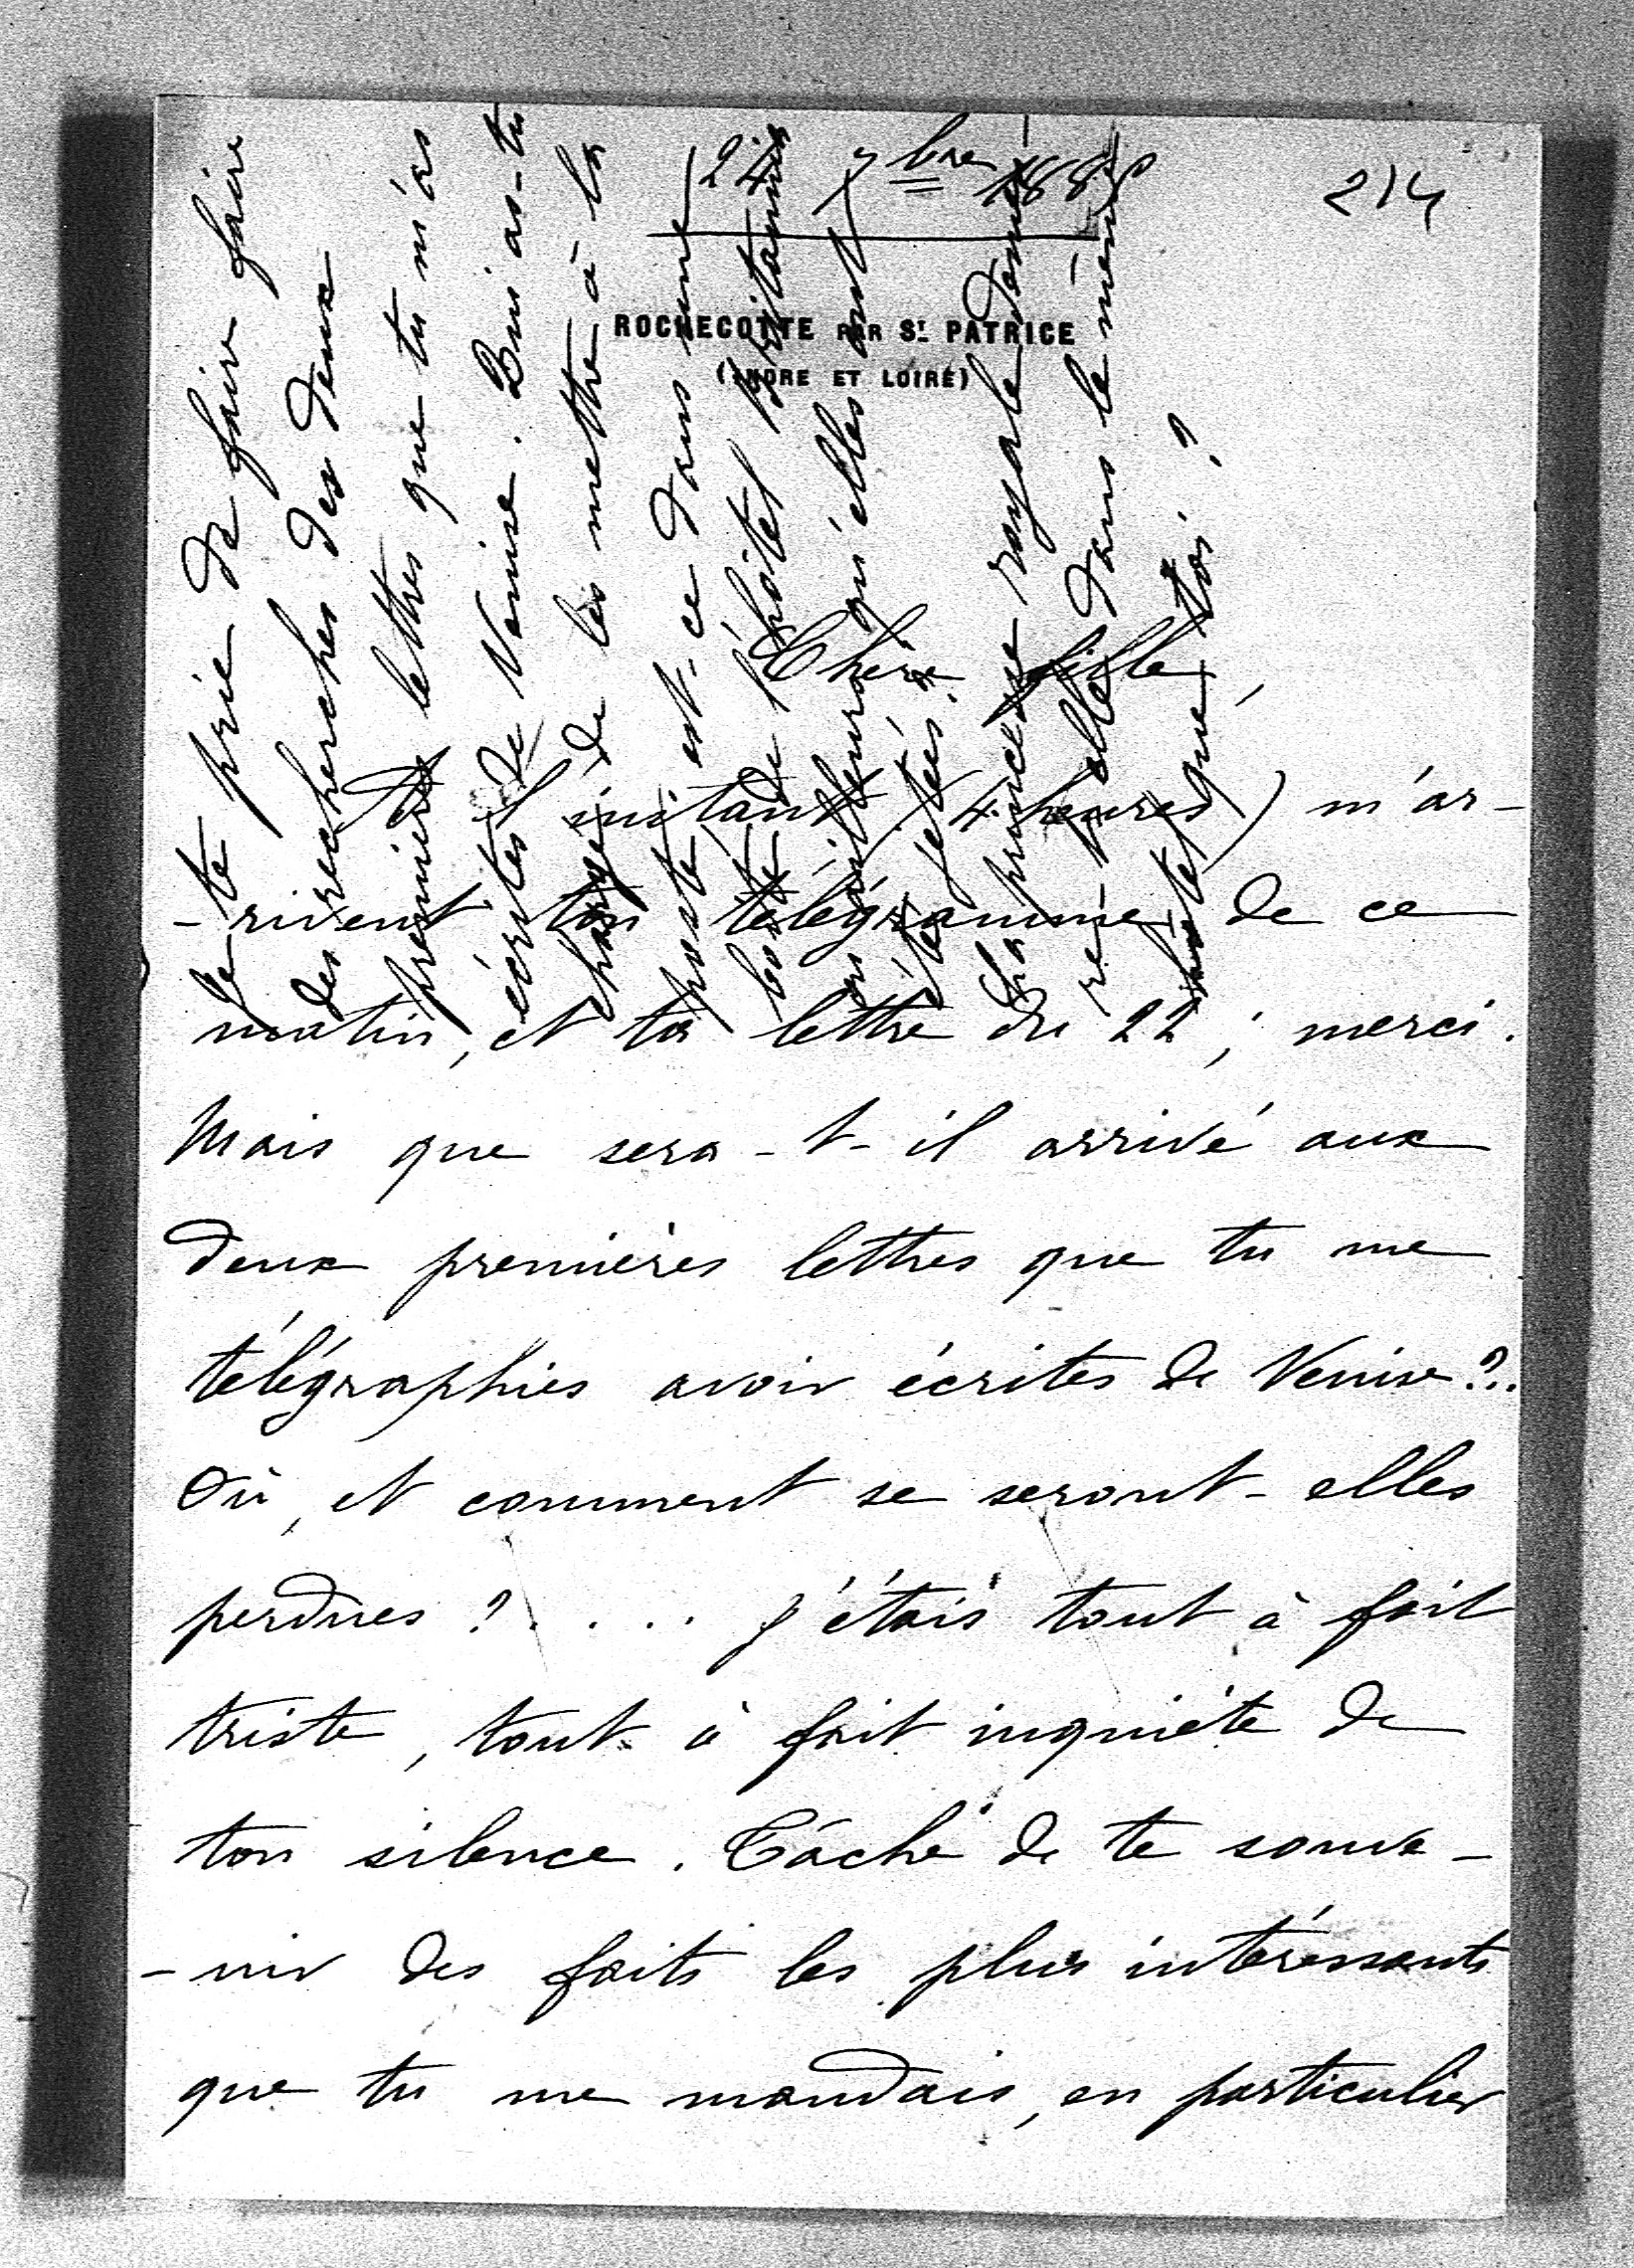 24 7bre 188
214
ROCHECOTTE PAR St. PATRICE
(INDRE ET LOIRE)
Chère fille,
A l'instant (4 heures) m'ar-
-rivent ton télégramme de ce
matin, et ta lettre du 22; merci.
Mais que sera-t-il arrivé aux
deux premières lettres que tu me
télégraphies avoir écrites de Venise?..
Où, et comment se seront-elles
perdues ?.... J'étais tout à fait
triste, tout à fait inquiète de
ton silence. Tâche de te souve-
-nir des faits les plus intéressants
que tu me mandais, en particulier
Je te prie de faire faire
des recherches des deux
premières lettres que tu m'as
écrites de Venise. Qui as-tu
chargé de les mettre à la
poste est-ce dans une
boite de l'hôtel Britannia
ou ailleurs qu'elles ont
étés jetées.
La princesse royale
re-t-elle dans le même
hôtel que toi?